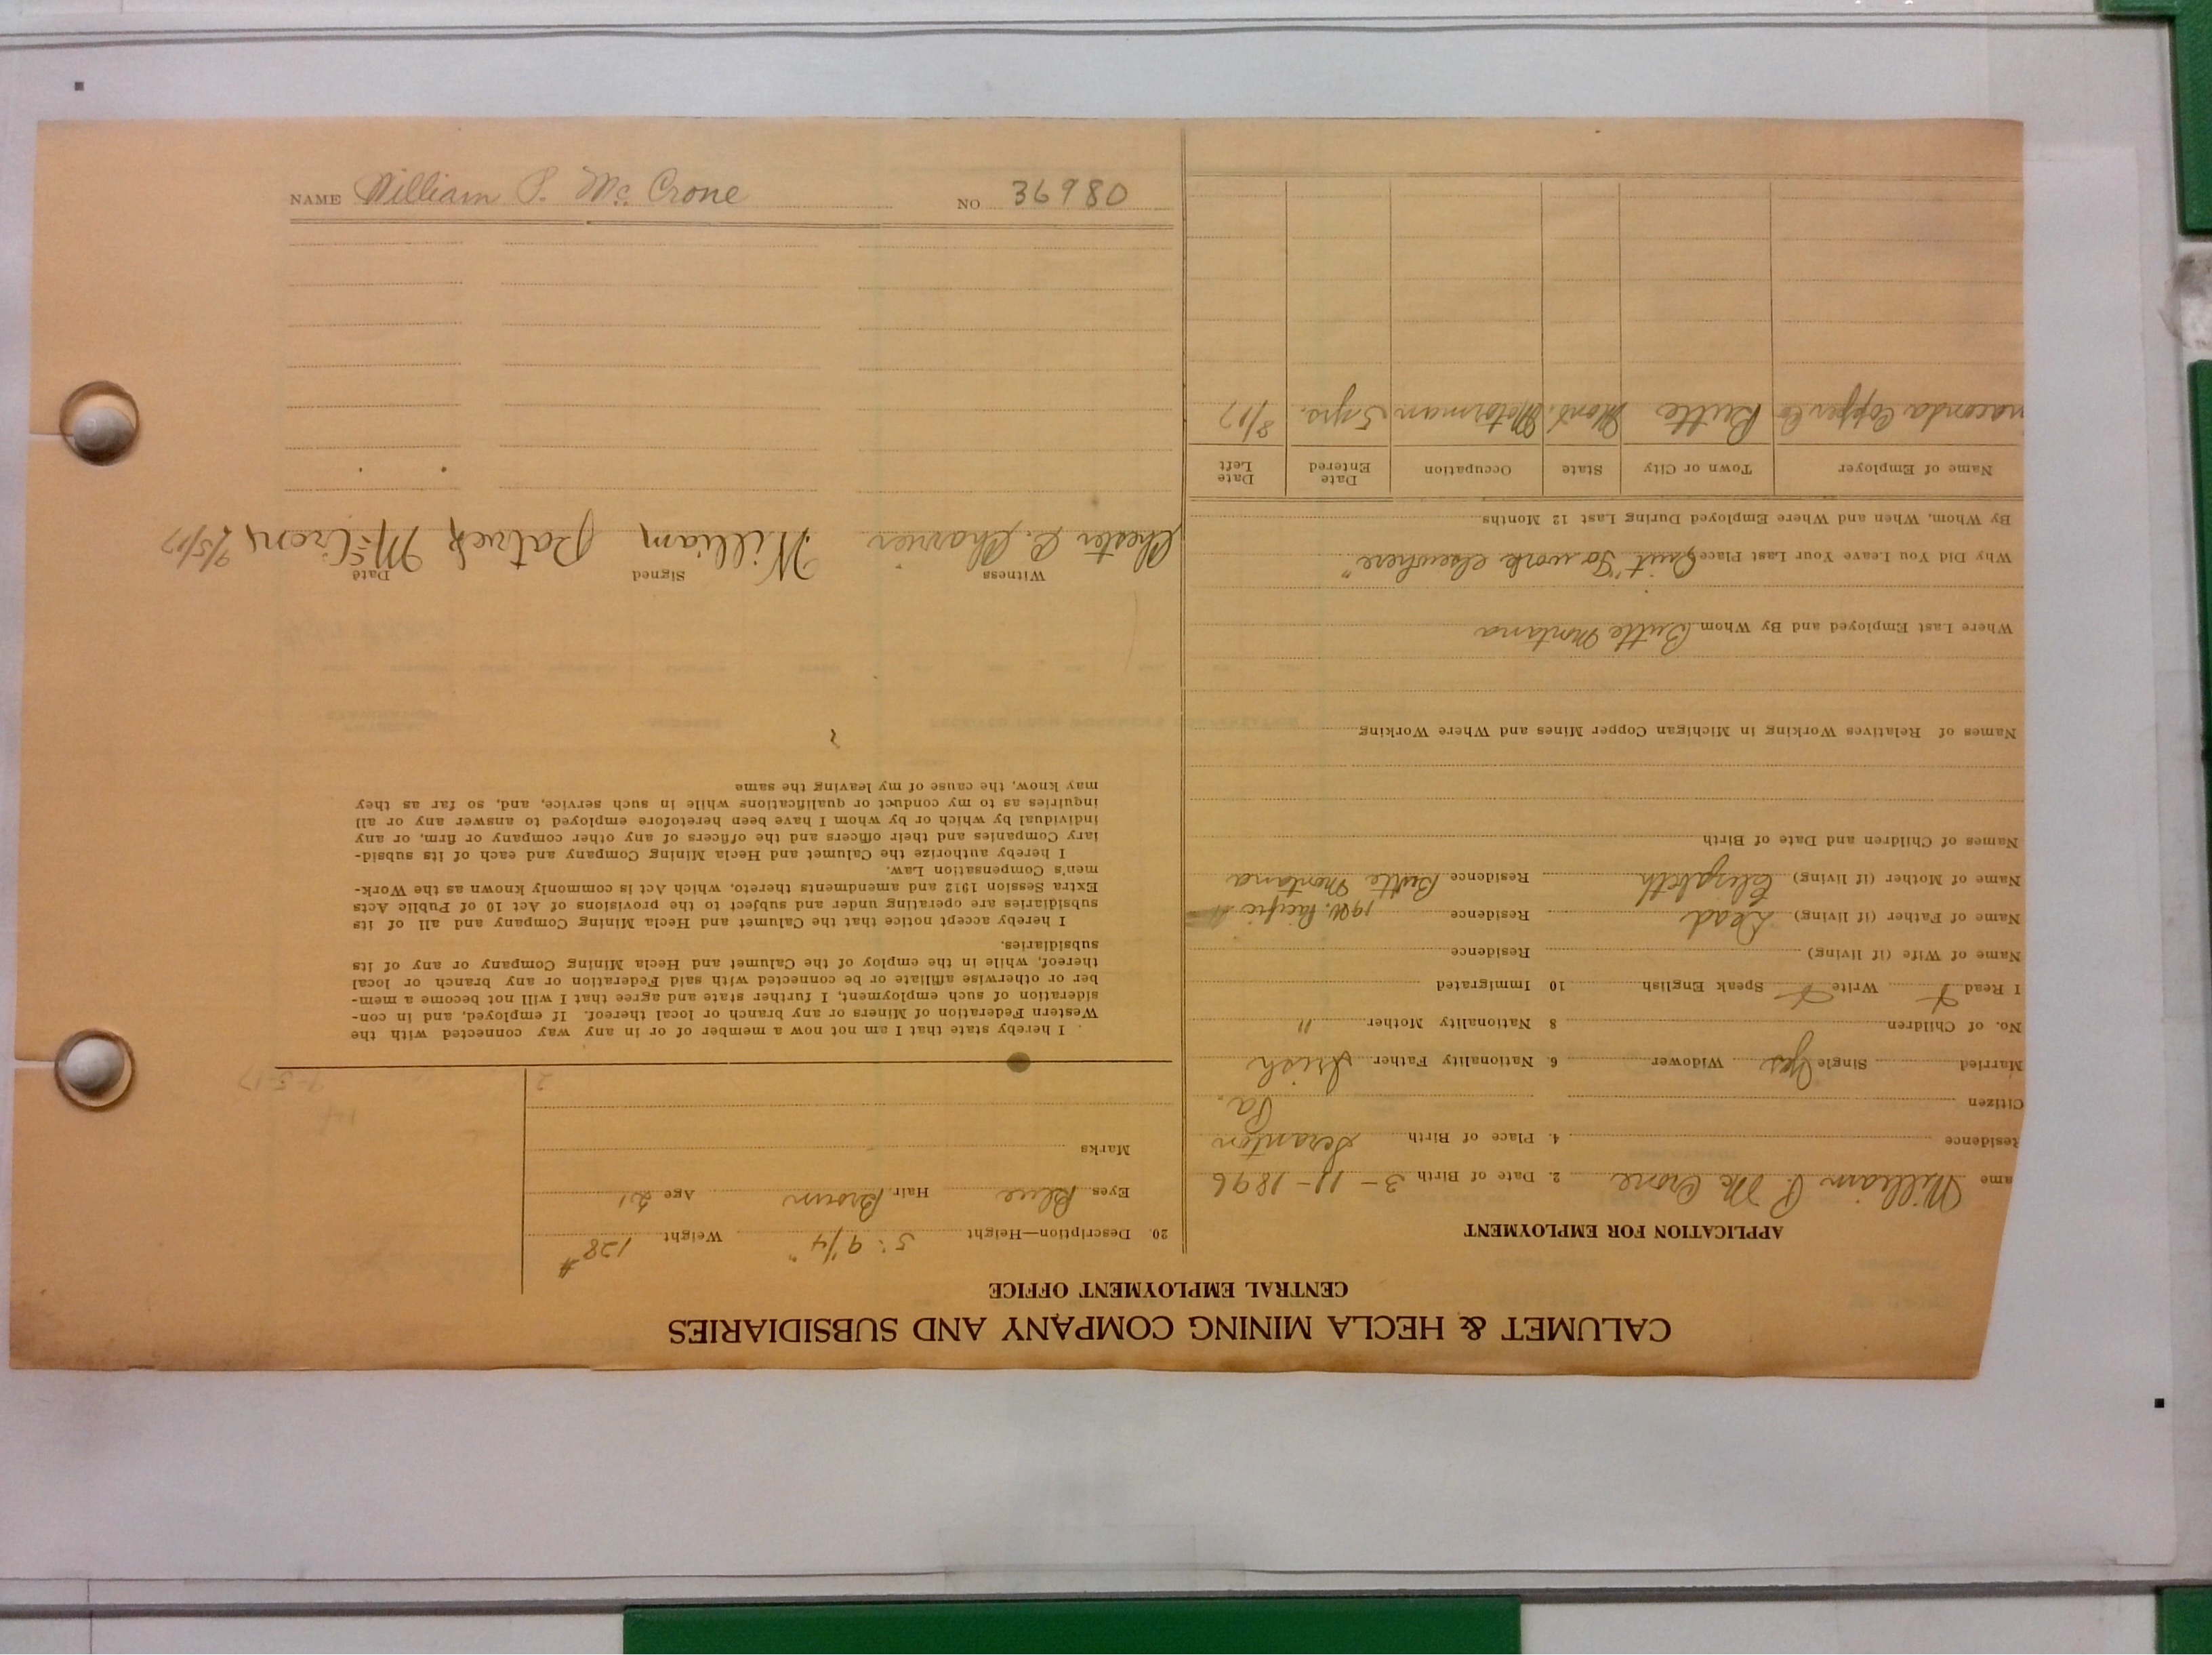 CALUMET & HECLA MINING COMPANY AND SUBSIDIARIES
CENTRAL EMPLOYMENT OFFICE
APPLICATION FOR EMPLOYMENT
ame William P. McCrone 2. Date of Birth 3-11-1896
Residence 4. Place of Birth Scranton
Citizen Pa.
Married Single Yes Widower 6. Nationality Father Irish
No. of Children 8 Nationality Mother "
I Read Write Speak English 10 Immigrated
Name of Wife (if living) Residence
Name of Father (if living) Dead Residence Pacific
Name of Mother (if living) Elizabeth Residence Butte Montana
Names of Children and Date of Birth
Names of Relatives Working in Michigan Copper Mines and Where Working
Where Last Employed and By Whom Butte Montana
Why Did You Leave Your Last Place Quit "To work elsewhere"
By Whom, When and Where Employed During Last 12 Months
Name of Employer Town or City State Occupation Date Entered Date Left
naconda Copper Co Butte Mont. Motorman 5 yrs. 8/17
20. Description—Height 5' 9 1/4" Weight 128#
Eyes Blue Hair Brown Age 21
Marks
2
9-5-17
I hereby state that I am not now a member of or in any way connected with the
Western Federation of Miners or any branch or local thereof. If employed, and in con-
sideration of such employment, I further state and agree that I will not become a mem-
ber or otherwise affiliate or be connected with said Federation or any branch or local
thereof, while in the employ of the Calumet and Hecla Mining Company or any of its
subsidiaries.
I hereby accept notice that the Calumet and Hecla Mining Company and all of its
subsidiaries are operating under and subject to the provisions of Act 10 of Public Acts
Extra Session 1912 and amendments thereto, which Act is commonly known as the Work-
men's Compensation Law.
I hereby authorize the Calumet and Hecla Mining Company and each of its subsid-
iary Companies and their officers and the officers of any other company or firm, or any
individual by which or by whom I have been heretofore employed to answer any or all
inquiries as to my conduct or qualifications while in such service, and, so far as they
may know, the cause of my leaving the same
Witness Signed Date
Chester C. William Patrick McCrone 9/5/17
NAME William P. McCrone NO 36980